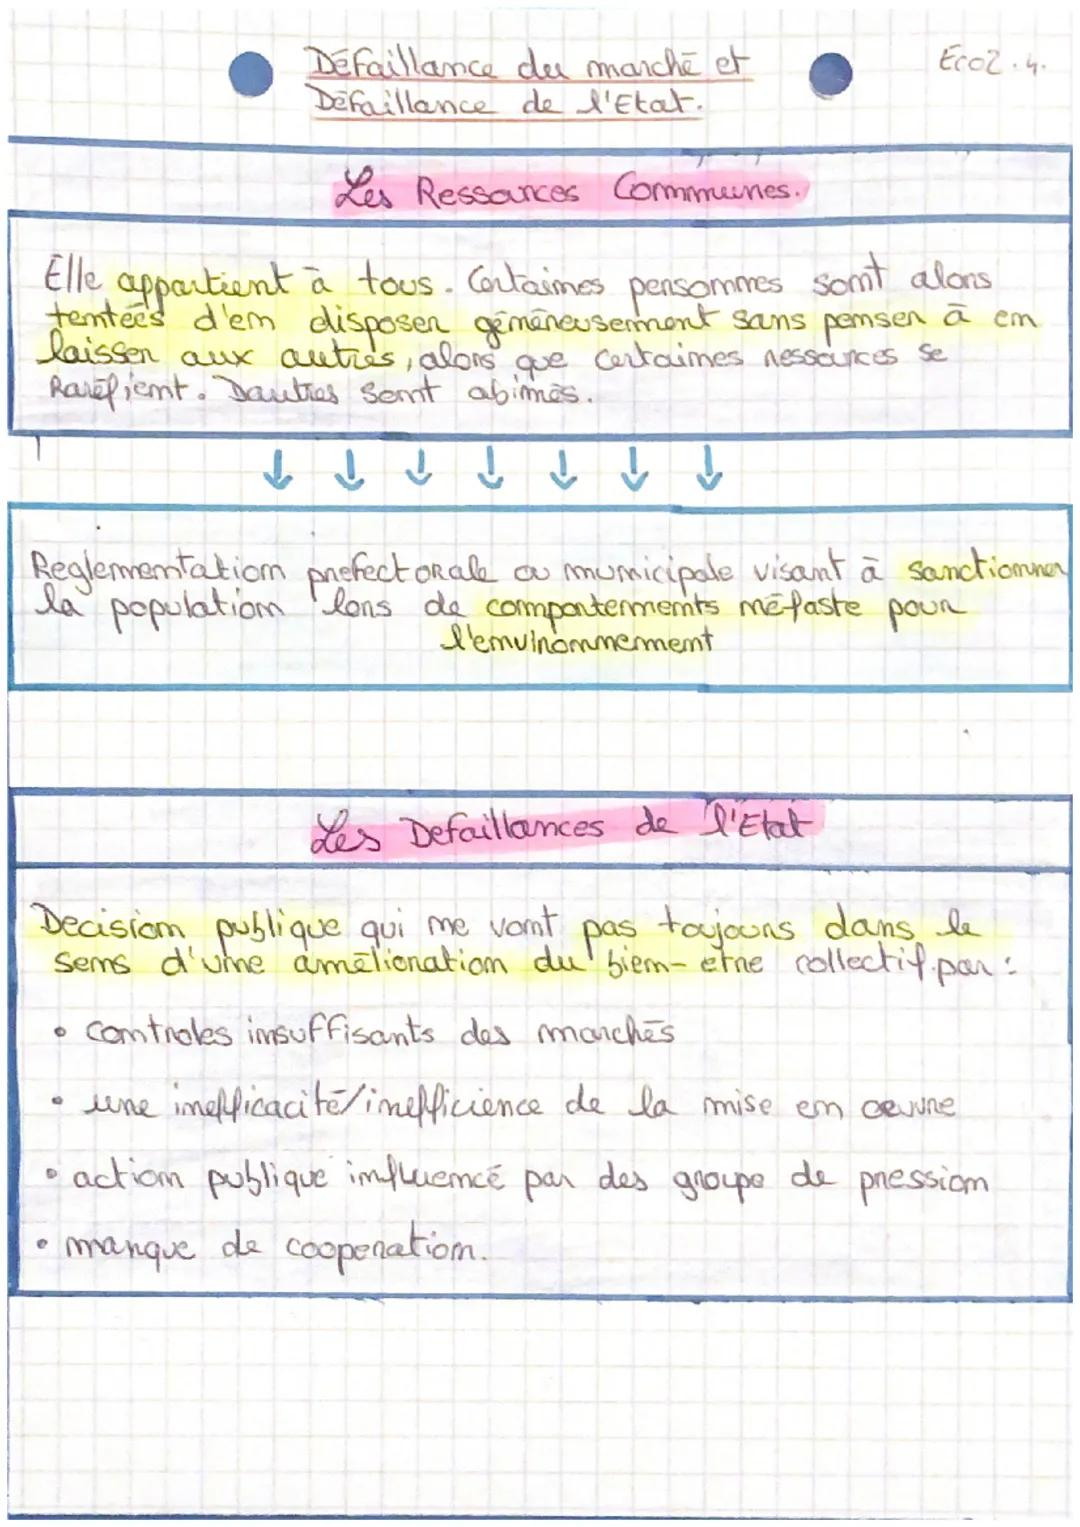 Défaillance du marché et
Défaillance de l'Etat.
Eco2.4.
Les Ressources Communes.
Elle appartient à tous. Certaines personnes sont alors
tentées d'en disposer généreusement sans penser à en
laisser aux autres, alors que certaines ressources se
Raréfient. Dautres sont abimés.
Reglementation prefectorale ou municipale visant à sanctionner
la population lors de comportements néfaste pour
l'environnement
Les Defaillances de l'Etat
Decision publique qui ne vont pas toujours dans le
sens d'une amélioration du bien-etre collectif par :
• controles insuffisants des marchés
• une inefficacité/inefficience de la mise en oeuvre
• action publique influencé par des groupe de pression
• manque de cooperation.